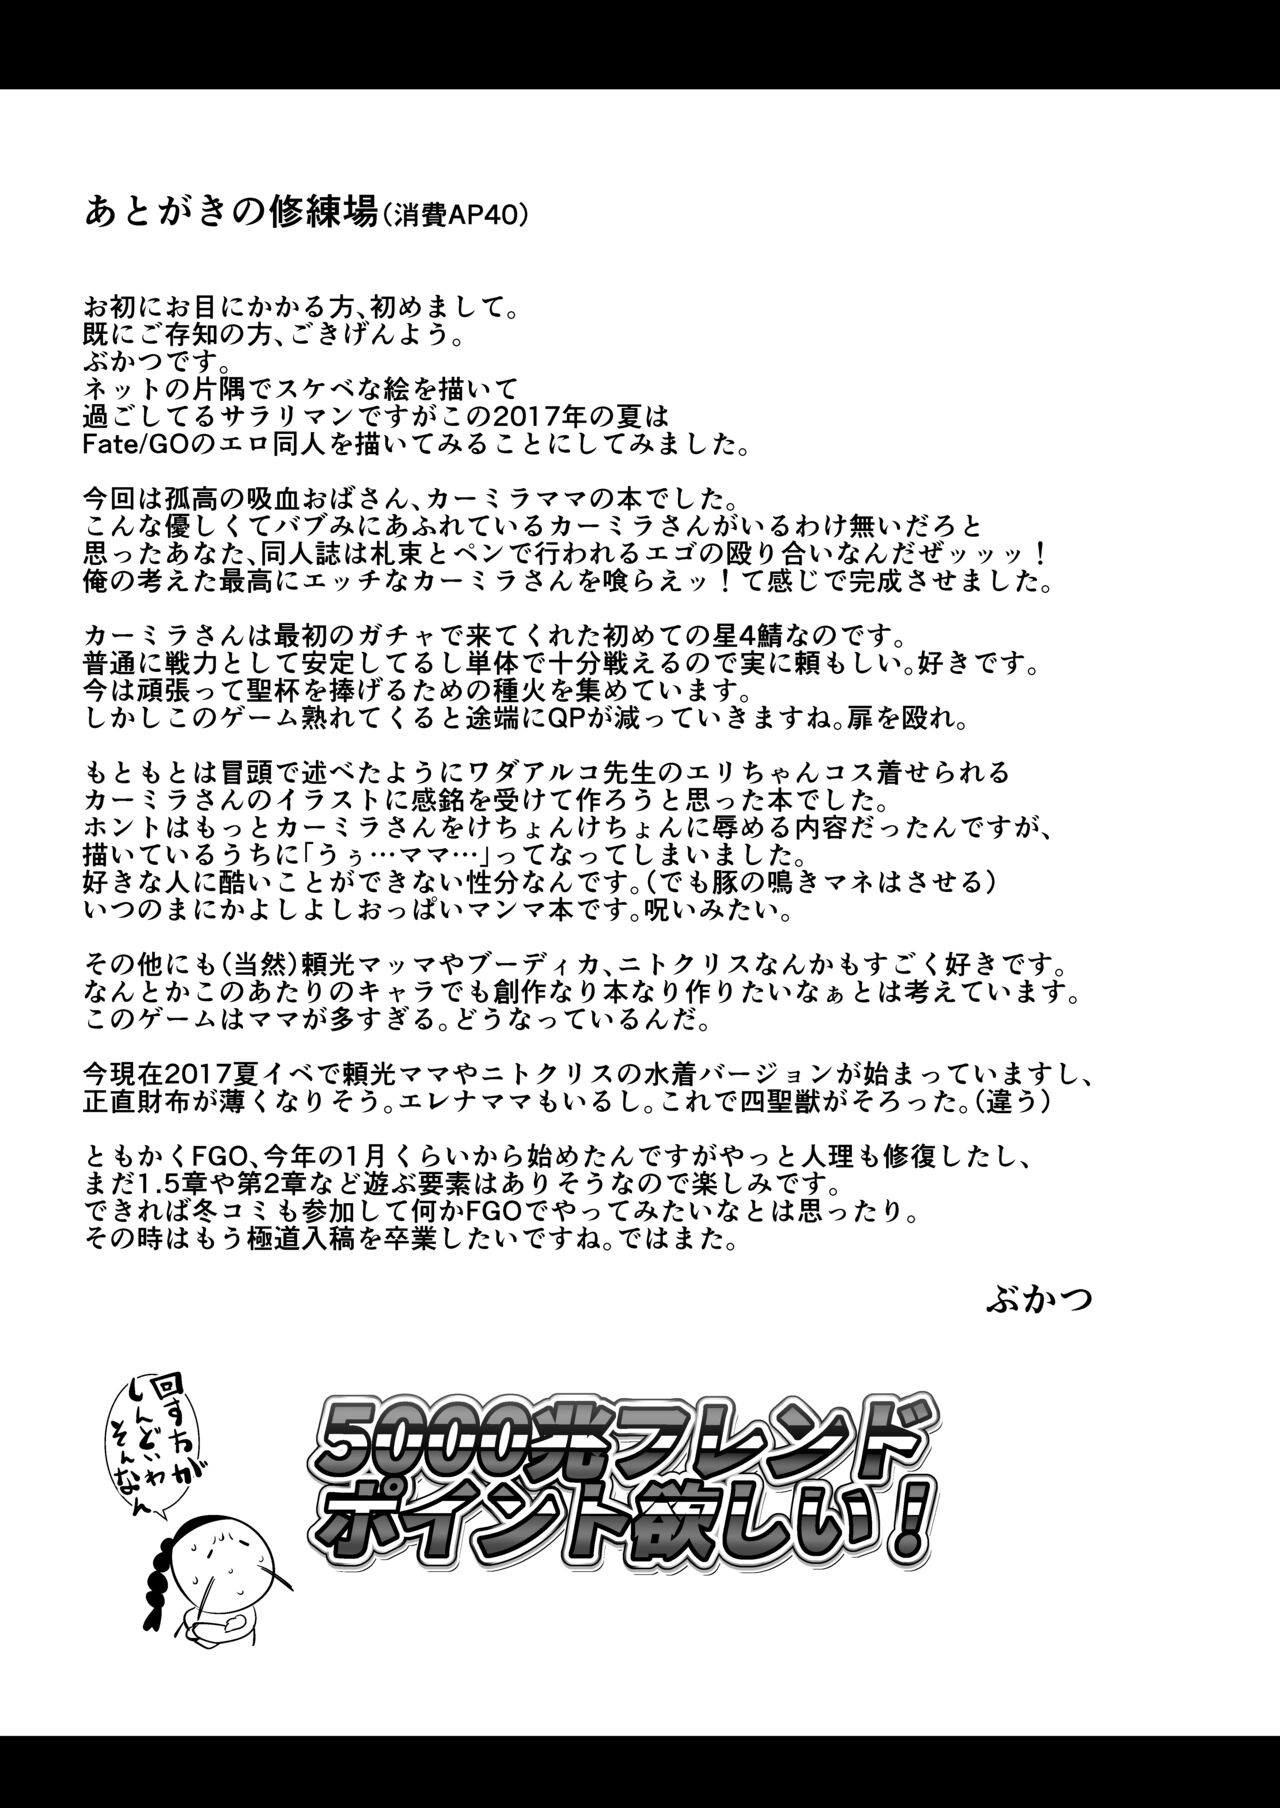 あとがきの修練場(消費AP40)
お初にお目にかかる方、初めまして。
既にご存知の方、ごきげんよう。
ぶかつです。
ネットの片隅でスケベな絵を描いて
過ごしてるサラリマンですがこの2017年の夏は
Fate/GOのエロ同人を描いてみることにしてみました。
今回は孤高の吸血おばさん、カーミラママの本でした。
こんな優しくてバブみにあふれているカーミラさんがいるわけ無いだろと
思ったあなた、同人誌は札束とペンで行われるエゴの殴り合いなんだぜッッッ!
俺の考えた最高にエッチなカーミラさんを喰らえッ!て感じで完成させました。
カーミラさんは最初のガチャで来てくれた初めての星4鯖なのです。
普通に戦力として安定してるし単体で十分戦えるので実に頼もしい。好きです。
今は頑張って聖杯を捧げるための種火を集めています。
しかしこのゲーム熟れてくると途端にQPが減っていきますね。扉を殴れ。
もともとは冒頭で述べたようにワダアルコ先生のエリちゃんコス着せられる
カーミラさんのイラストに感銘を受けて作ろうと思った本でした。
ホントはもっとカーミラさんをけちょんけちょんに辱める内容だったんですが、
描いているうちに「うぅ…ママ…」ってなってしまいました。
好きな人に酷いことができない性分なんです。(でも豚の鳴きマネはさせる)
いつのまにかよしよしおっぱいマンマ本です。呪いみたい。
その他にも(当然)頼光マッマやブーディカ、ニトクリスなんかもすごく好きです。
なんとかこのあたりのキャラでも創作なり本なり作りたいなぁとは考えています。
このゲームはママが多すぎる。どうなっているんだ。
今現在2017夏イベで頼光ママやニトクリスの水着バージョンが始まっていますし、
正直財布が薄くなりそう。エレナママもいるし。これで四聖獣がそろった。(違う)
ともかくFGO、今年の1月くらいから始めたんですがやっと人理も修復したし、
まだ1.5章や第2章など遊ぶ要素はありそうなので楽しみです。
できれば冬コミも参加して何かFGOでやってみたいなとは思ったり。
その時はもう極道入稿を卒業したいですね。ではまた。
ぶかつ
回すちが
しんどいわ
そんなん
5000兆フレンド
ポイント欲しい!